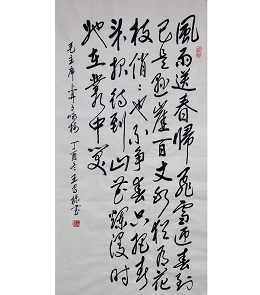 風雨送春歸飛雪迎春到
已是懸崖百丈冰猶有花
枝俏〻也不争春只把春
来报待到山花爛漫时
她在叢中笑
毛主席卜算子咏梅 丁酉冬王书